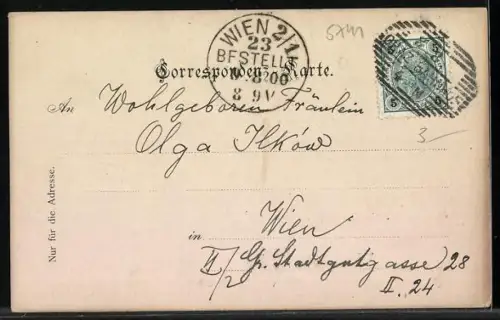 5741
WIEN 2/1
23
BESTELLT
00
8 9V
Correspondenz-Karte.
5 5
3-
An Wohlgeboren Fräulein
Olga Ilków
in Wien
II/2 Gr. Stadtgutgasse 28
II. 24
Nur für die Adresse.